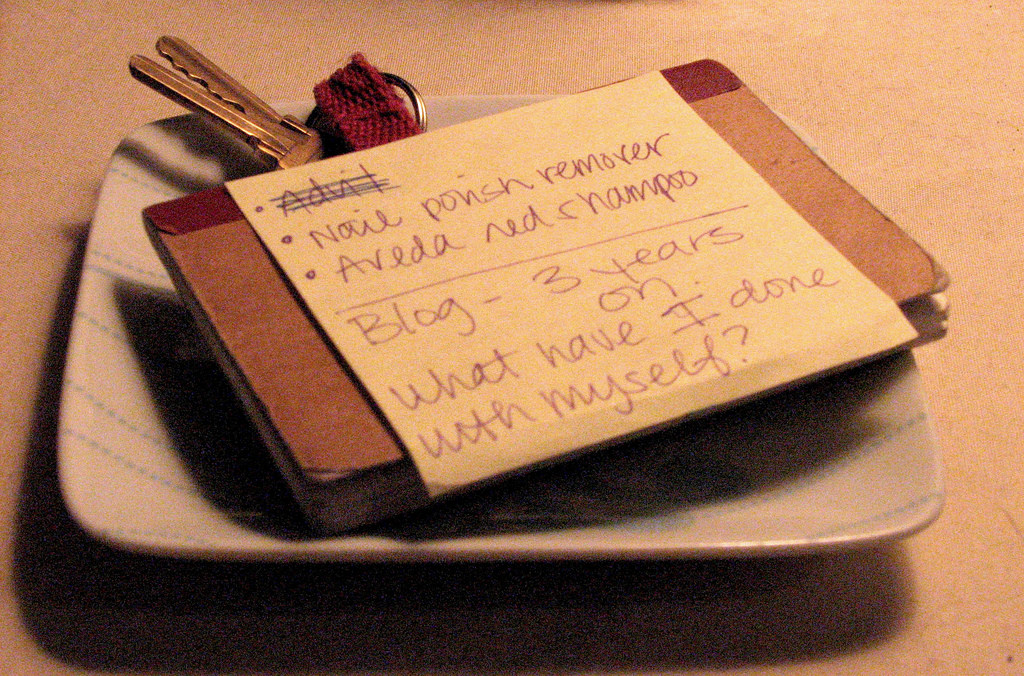 • Advil
• Naile polish remover
• Aveda red shampoo
Blog - 3 years
on.
what have I done
with myself?